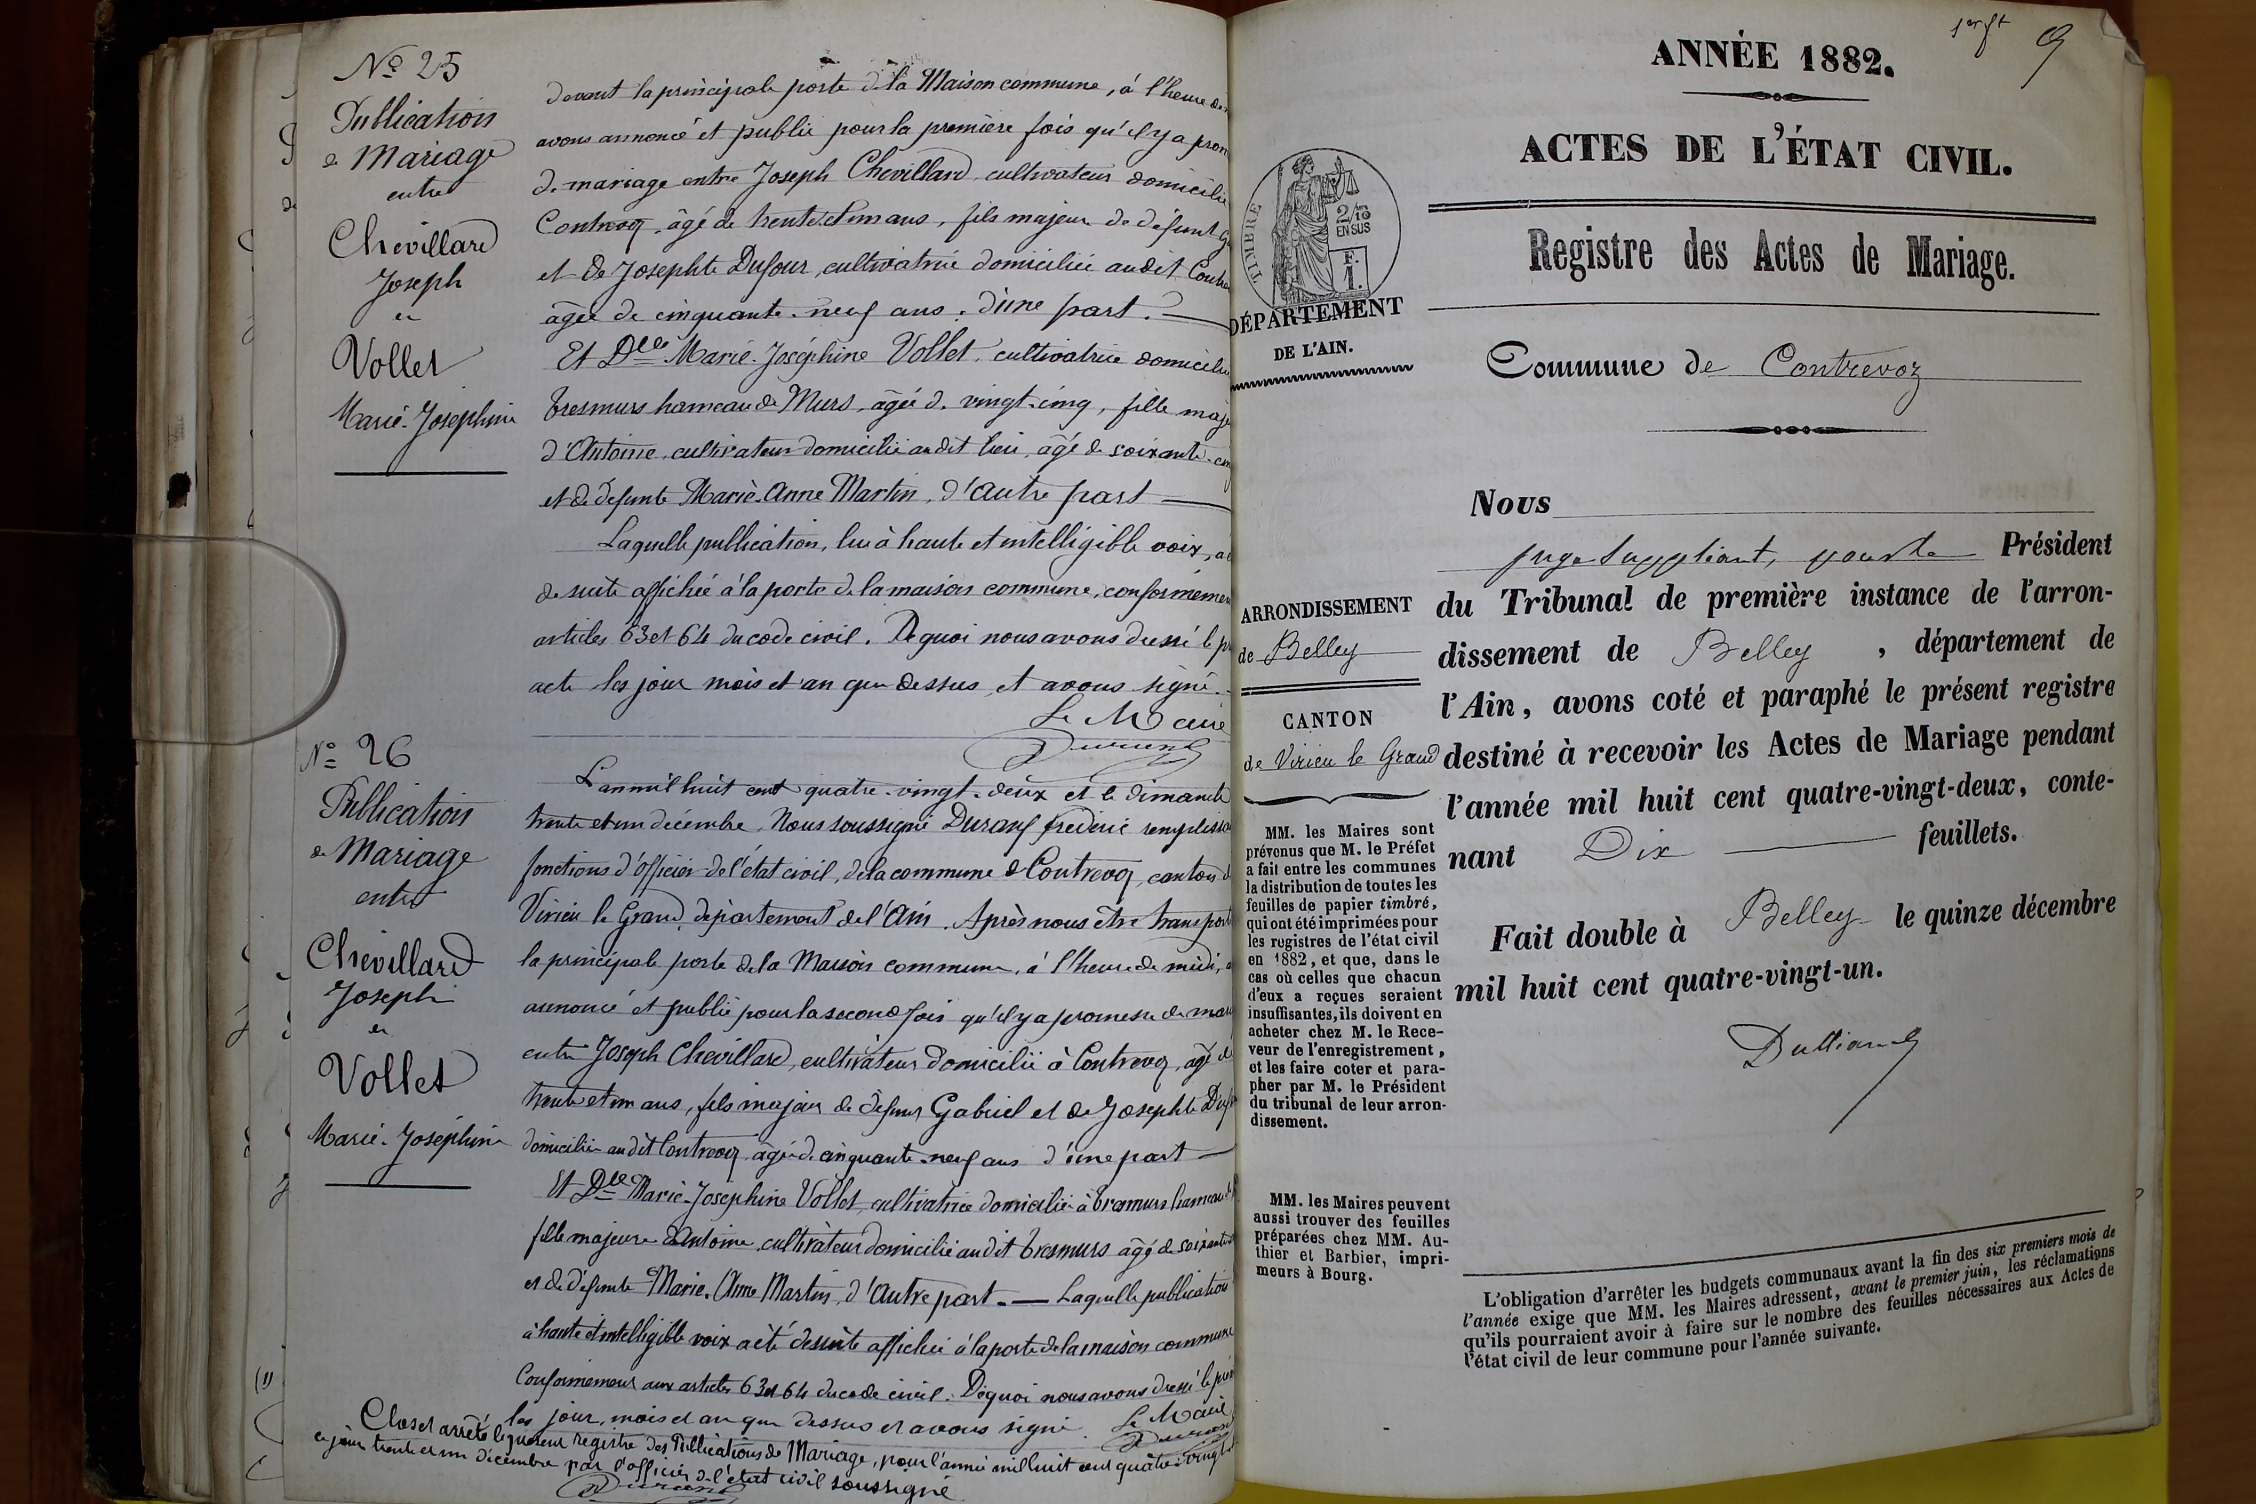 Nº 25
Publication
de Mariage
entre
Chevillard
Joseph
et
Vollet
Marie-Joséphine
devant la principale porte de la Maison commune, à l'heure de
avons annoncé et publié pour la première fois qu'il y a prom
de mariage entre Joseph Chevillard, cultivateur domicilié
Contrevoz, âgé de trente et un ans, fils majeur de défunt
et de Josephte Dufour, cultivatrice domiciliée audit Contre
âgée de cinquante-neuf ans, d'une part.
Et Dlle Marie-Joséphine Vollet, cultivatrice domicilié
Tresmurs hameau de Murs, âgée de vingt-cinq, fille maje
d'Antoine, cultivateur domicilié audit lieu, âgé de soixante-cinq
et de défunte Marie-Anne Martin, d'autre part
Laquelle publication, lue à haute et intelligible voix, a
de suite affichée à la porte de la maison commune, conformémen
articles 63 et 64 du code civil. De quoi nous avons dressé le pr
acte les jour mois et an que dessus, et avons signé.
Le Maire
Durand
Nº 26
Publication
de Mariage
entre
Chevillard
Joseph
et
Vollet
Marie-Joséphine
L'an mil huit cent quatre-vingt-deux et le dimanche
trente et un décembre, Nous soussigné Durand frédéric remplissa
fonctions d'officier de l'état civil, de la commune de Contrevoz, canton d
Virieu le Grand, département de l'Ain. Après nous être transport
la principale porte de la Maison commune, à l'heure de midi, a
annoncé et publié pour la seconde fois qu'il y a promesse de mari
entre Joseph Chevillard, cultivateur domicilié à Contrevoz, âgé de
trente et un ans, fils majeur de défunt Gabriel et de Josephte Duf
domiciliée audit Contrevoz âgée de cinquante-neuf ans d'une part
Et Dlle Marie-Joséphine Vollet, cultivatrice domiciliée à Tresmurs hameau
fille majeure d'Antoine, cultivateur domicilié audit Tresmurs âgé de soixante
et de défunte Marie-Anne Martin, d'autre part. — Laquelle publication
à haute et intelligible voix a été de suite affichée à la porte de la maison commune
Conformément aux articles 63 et 64 du code civil. De quoi nous avons dressé le prés
les jour, mois et an que dessus et avons signé. Le Maire
Durand
Clos et arrêté le présent registre des Publications de Mariage, pour l'année mil huit cent quatre-vingt
ce jour trente et un décembre par l'officier de l'état civil soussigné
Durand
9
ANNÉE 1882.
ACTES DE L'ÉTAT CIVIL.
Registre des Actes de Mariage.
TIMBRE
2/10
EN SUS
F.
1.
DÉPARTEMENT
DE L'AIN.
Commune de Contrevoz
Nous
juge suppléant, pour le Président
du Tribunal de première instance de l'arron-
dissement de Belley, département de
l'Ain, avons coté et paraphé le présent registre
destiné à recevoir les Actes de Mariage pendant
l'année mil huit cent quatre-vingt-deux, conte-
nant Dix feuillets.
Fait double à Belley le quinze décembre
mil huit cent quatre-vingt-un.
ARRONDISSEMENT
de Belley
CANTON
de Virieu le Grand
MM. les Maires sont
prévenus que M. le Préfet
a fait entre les communes
la distribution de toutes les
feuilles de papier timbré,
qui ont été imprimées pour
les registres de l'état civil
en 1882, et que, dans le
cas où celles que chacun
d'eux a reçues seraient
insuffisantes, ils doivent en
acheter chez M. le Rece-
veur de l'enregistrement,
et les faire coter et para-
pher par M. le Président
du tribunal de leur arron-
dissement.
MM. les Maires peuvent
aussi trouver des feuilles
préparées chez MM. Au-
thier et Barbier, impri-
meurs à Bourg.
L'obligation d'arrêter les budgets communaux avant la fin des six premiers mois de
l'année exige que MM. les Maires adressent, avant le premier juin, les réclamations
qu'ils pourraient avoir à faire sur le nombre des feuilles nécessaires aux Actes de
l'état civil de leur commune pour l'année suivante.